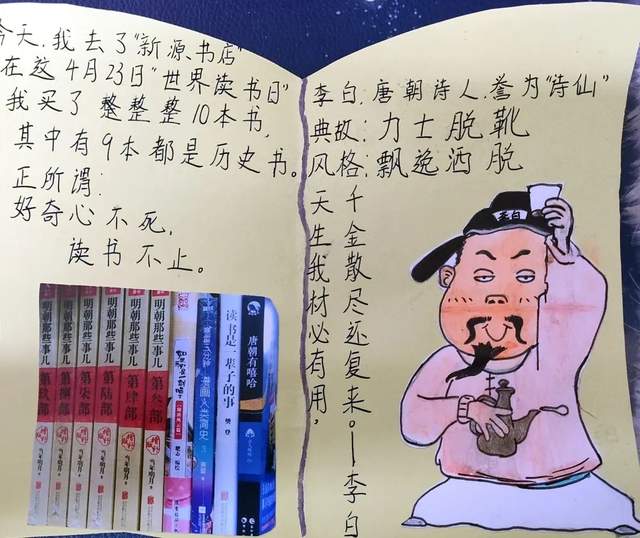 今天,我去了"新源书店"
在这4月23日"世界读书日"
我买了整整整10本书,
其中有9本都是历史书。
正所谓:
好奇心不死,
读书不止。
明朝那些事儿 第玖部 当年明月
明朝那些事儿 第捌部 当年明月
明朝那些事儿 第柒部 当年明月
明朝那些事儿 第陆部 当年明月
明朝那些事儿 第肆部 当年明月
明朝那些事儿 第叁部 当年明月
读书是一辈子的事
唐朝有嘻哈
李白,唐朝诗人,誉为"诗仙"
典故:力士脱靴
风格:飘逸洒脱
天生我材必有用,
千金散尽还复来。——李白
李白